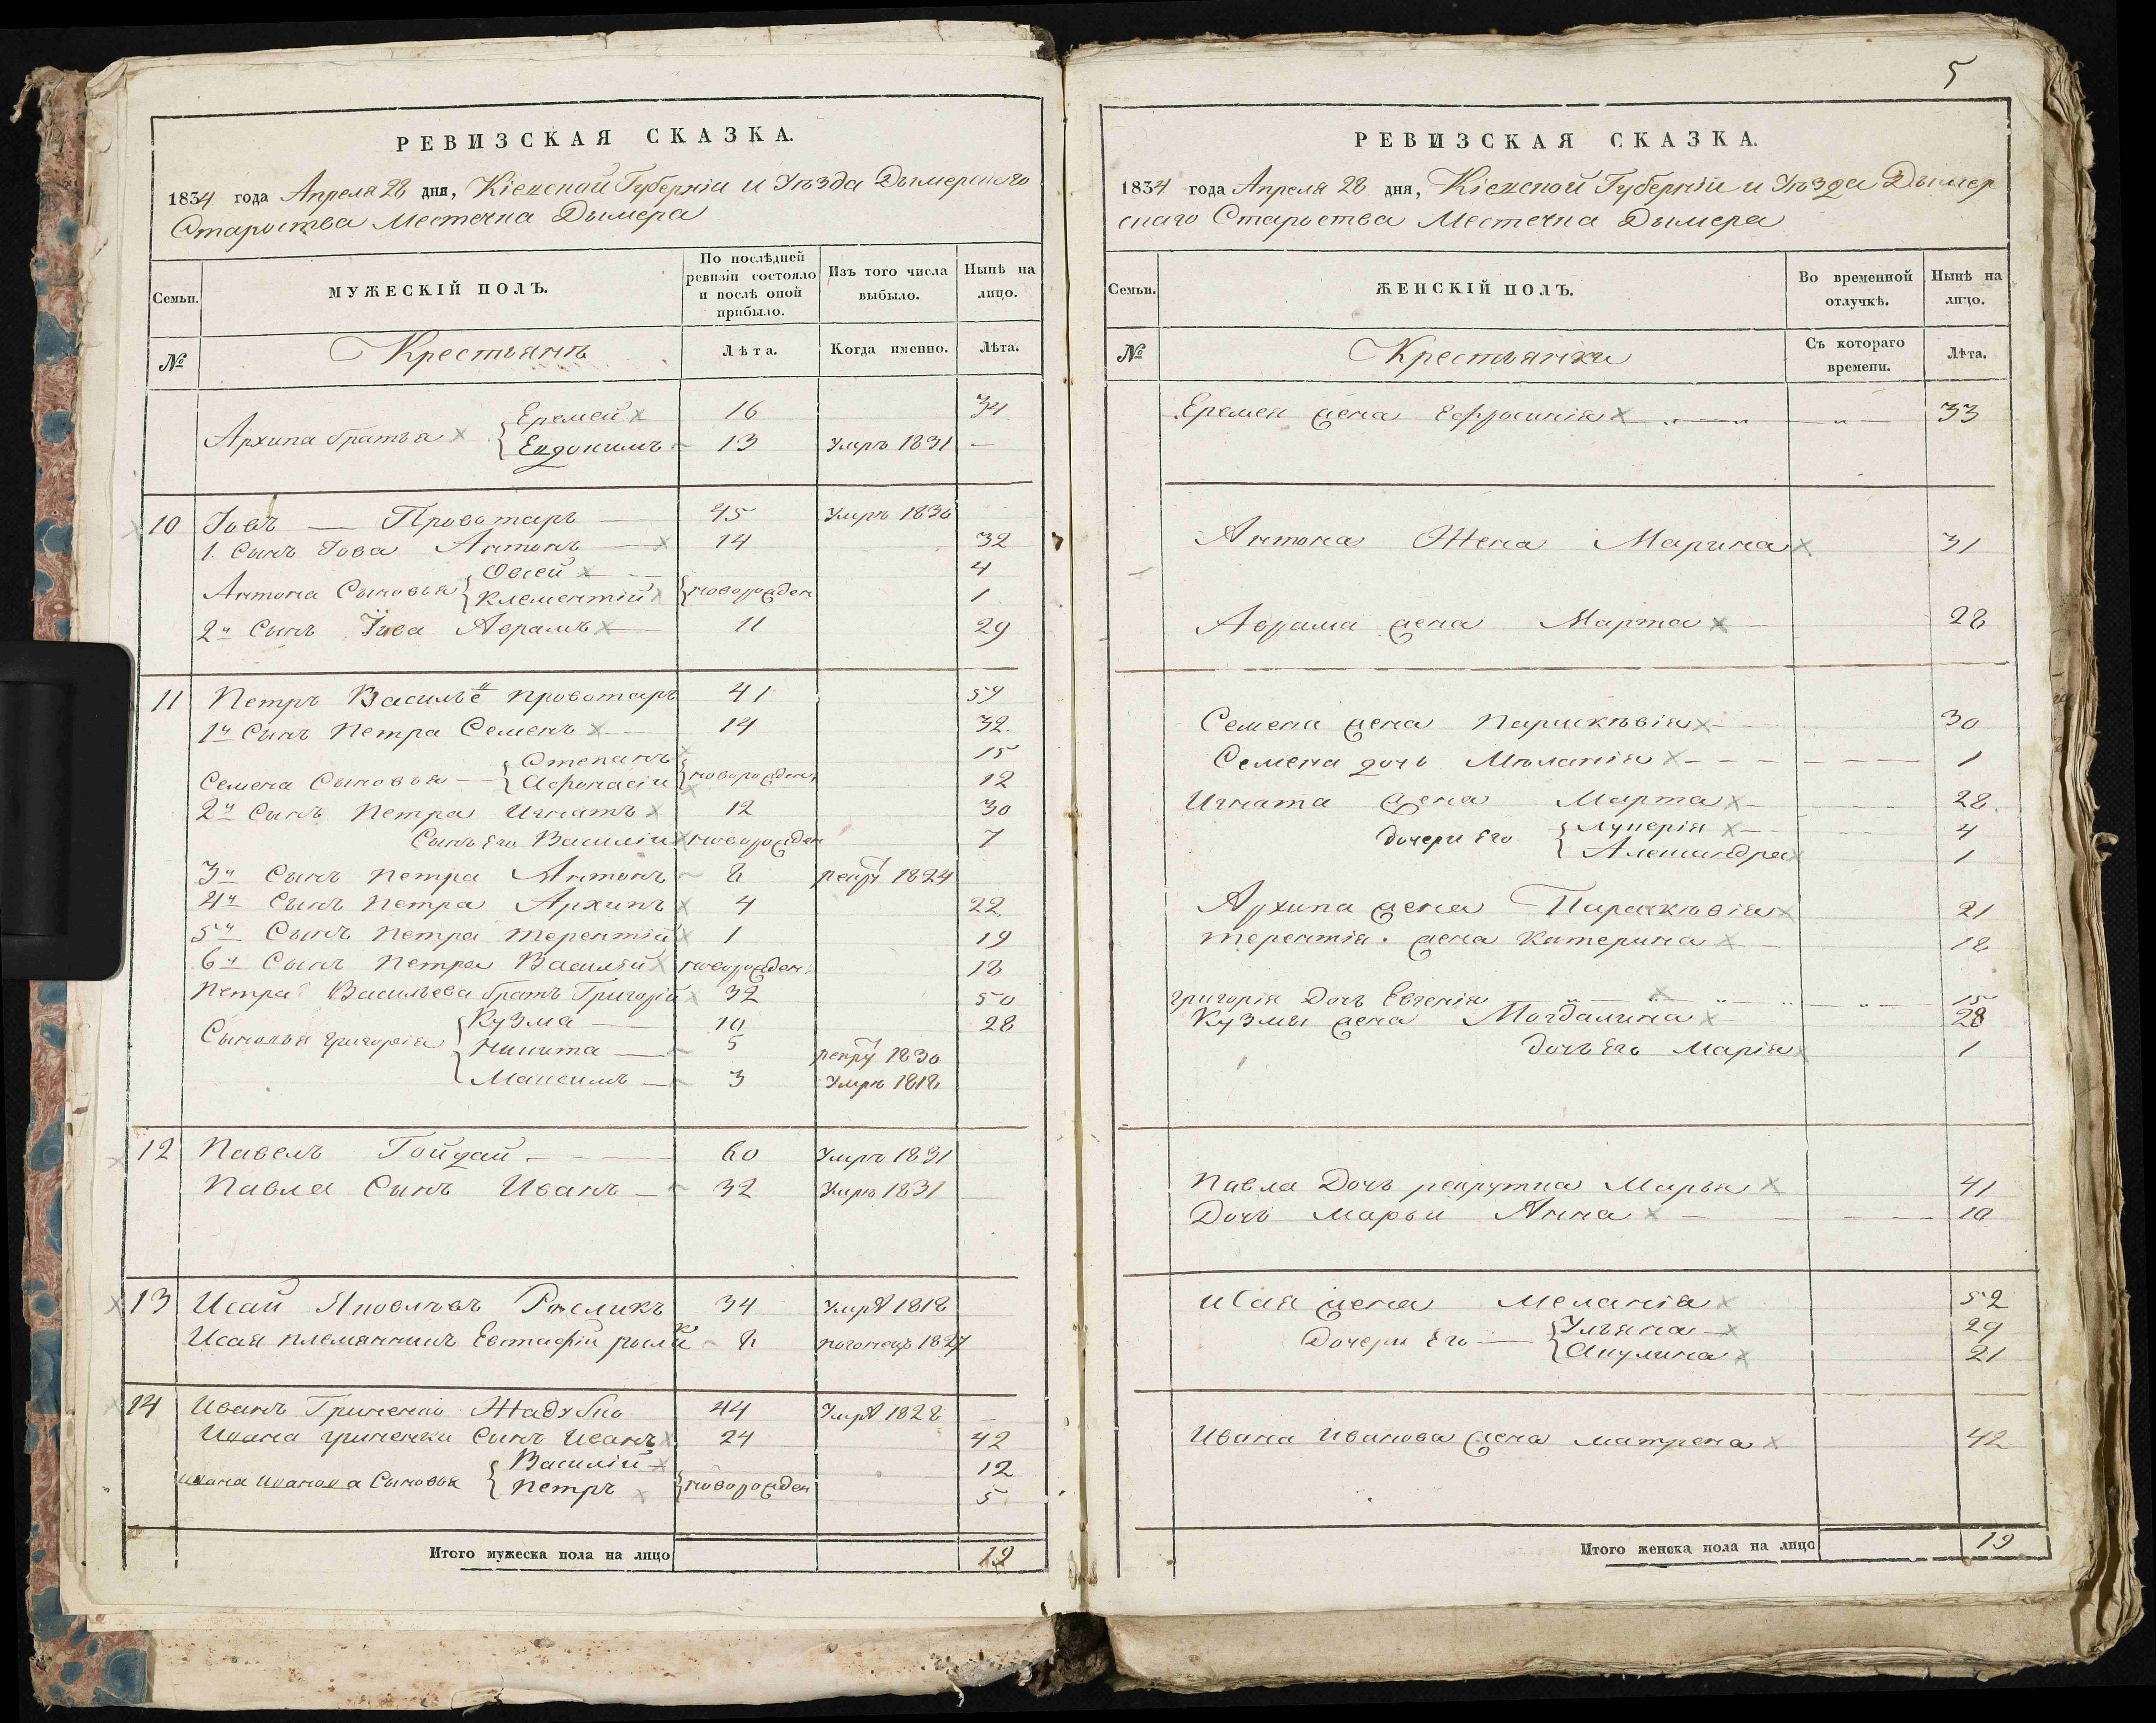 РЕВИЗСКАЯ СКАЗКА.
1834 года Апреля 28 дня, Кіевской Губерніи и Уѣзда Дымерскаго
Староства Местечка Дымера
Семьи.
МУЖЕСКІЙ ПОЛЪ.
По послѣдней ревизіи состояло и послѣ оной прибыло.
Изъ того числа выбыло.
Нынѣ на лицо.
№
Крестьянъ
Лѣта.
Когда именно.
Лѣта.
Архипа братья { Еремей 16 34
Евдокимъ 13 Умръ 1831 —
10 Іовъ — Провотаръ 45 Умръ 1830
1. Сынъ Іова Антонъ 14 32
Антона Сыновья { Овсей 4
Клементій } новорожден 1
2й Сынъ Іова Аврамъ 11 29
11 Петръ Васильѐ Провотаръ 41 59
1й Сынъ Петра Семенъ 14 32.
Семена Сыновья — { Степанъ 15
Афонасіи } новорожден 12
2й Сынъ Петра Игнатъ 12 30
Сынъ Его Василіи новорожден 7
3й Сынъ Петра Антонъ 8 рекру 1824
4й Сынъ Петра Архипъ 4 22
5й Сынъ Петра Терентій 1 19
6й Сынъ Петра Василій новорожден: 18
Петра Васильева братъ Григорій 32 50
Сыновья григорія { Кузма 10 28
Никита 5 рекру 1830
Максимъ 3 Умръ 1818
12 Павелъ Гойдай 60 Умръ 1831
Павла Сынъ Иванъ 32 Умръ 1831
13 Исаи Яковлѣвъ Росликъ 34 Умръ 1818
Исая племянникъ Евстафіи росликъ 8 погонецъ 1827
14 Иванъ Гриненко Жадубко 44 Умръ 1828 —
Ивана гриненка Сынъ Иванъ 24 42
ивана иванова Сыновья { Василій 12
Петръ } новорожден 5
Итого мужеска пола на лицо 19
5
РЕВИЗСКАЯ СКАЗКА.
1834 года Апреля 28 дня, Кіевской Губерніи и Уѣзда Дымер
скаго Староства Местечка Дымера
Семьи.
ЖЕНСКІЙ ПОЛЪ.
Во временной отлучкѣ.
Нынѣ на лицо.
№
Крестьянки
Съ котораго времени.
Лѣта.
Еремея жена Ефросинія 33
Антона Жена Марина 31
Аврама жена Марта 28
Семена жена Парискѣвія 30
Семена дочь Мѣланія 1
Игната жена Марта 28
Дочери Его { Лукерія 4
Алешандра 1
Архипа жена Параскѣвія 21
Терентія жена Катерина 18
григорія Дочь Евгенія 15
Кузмы жена Могдалина 28
Дочь Его Марія 1
Павла Дочь рекрутка Марья 41
Дочь Марьи Анна 10
Исая жена Меланія 52
Дочери Его — { Ульяна 29
Акулина 21
Ивана Иванова жена матрена 42
Итого женска пола на лицо 19